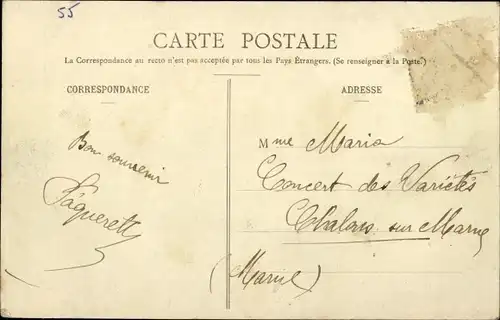 55
CARTE POSTALE
La Correspondance au recto n'est pas acceptée par tous les Pays Étrangers. (Se renseigner à la Poste.)
CORRESPONDANCE
ADRESSE
Bon souvenir
Pâquerett
Mme Maria
Concert des Variétés
Chalons sur Marne
(Marne)